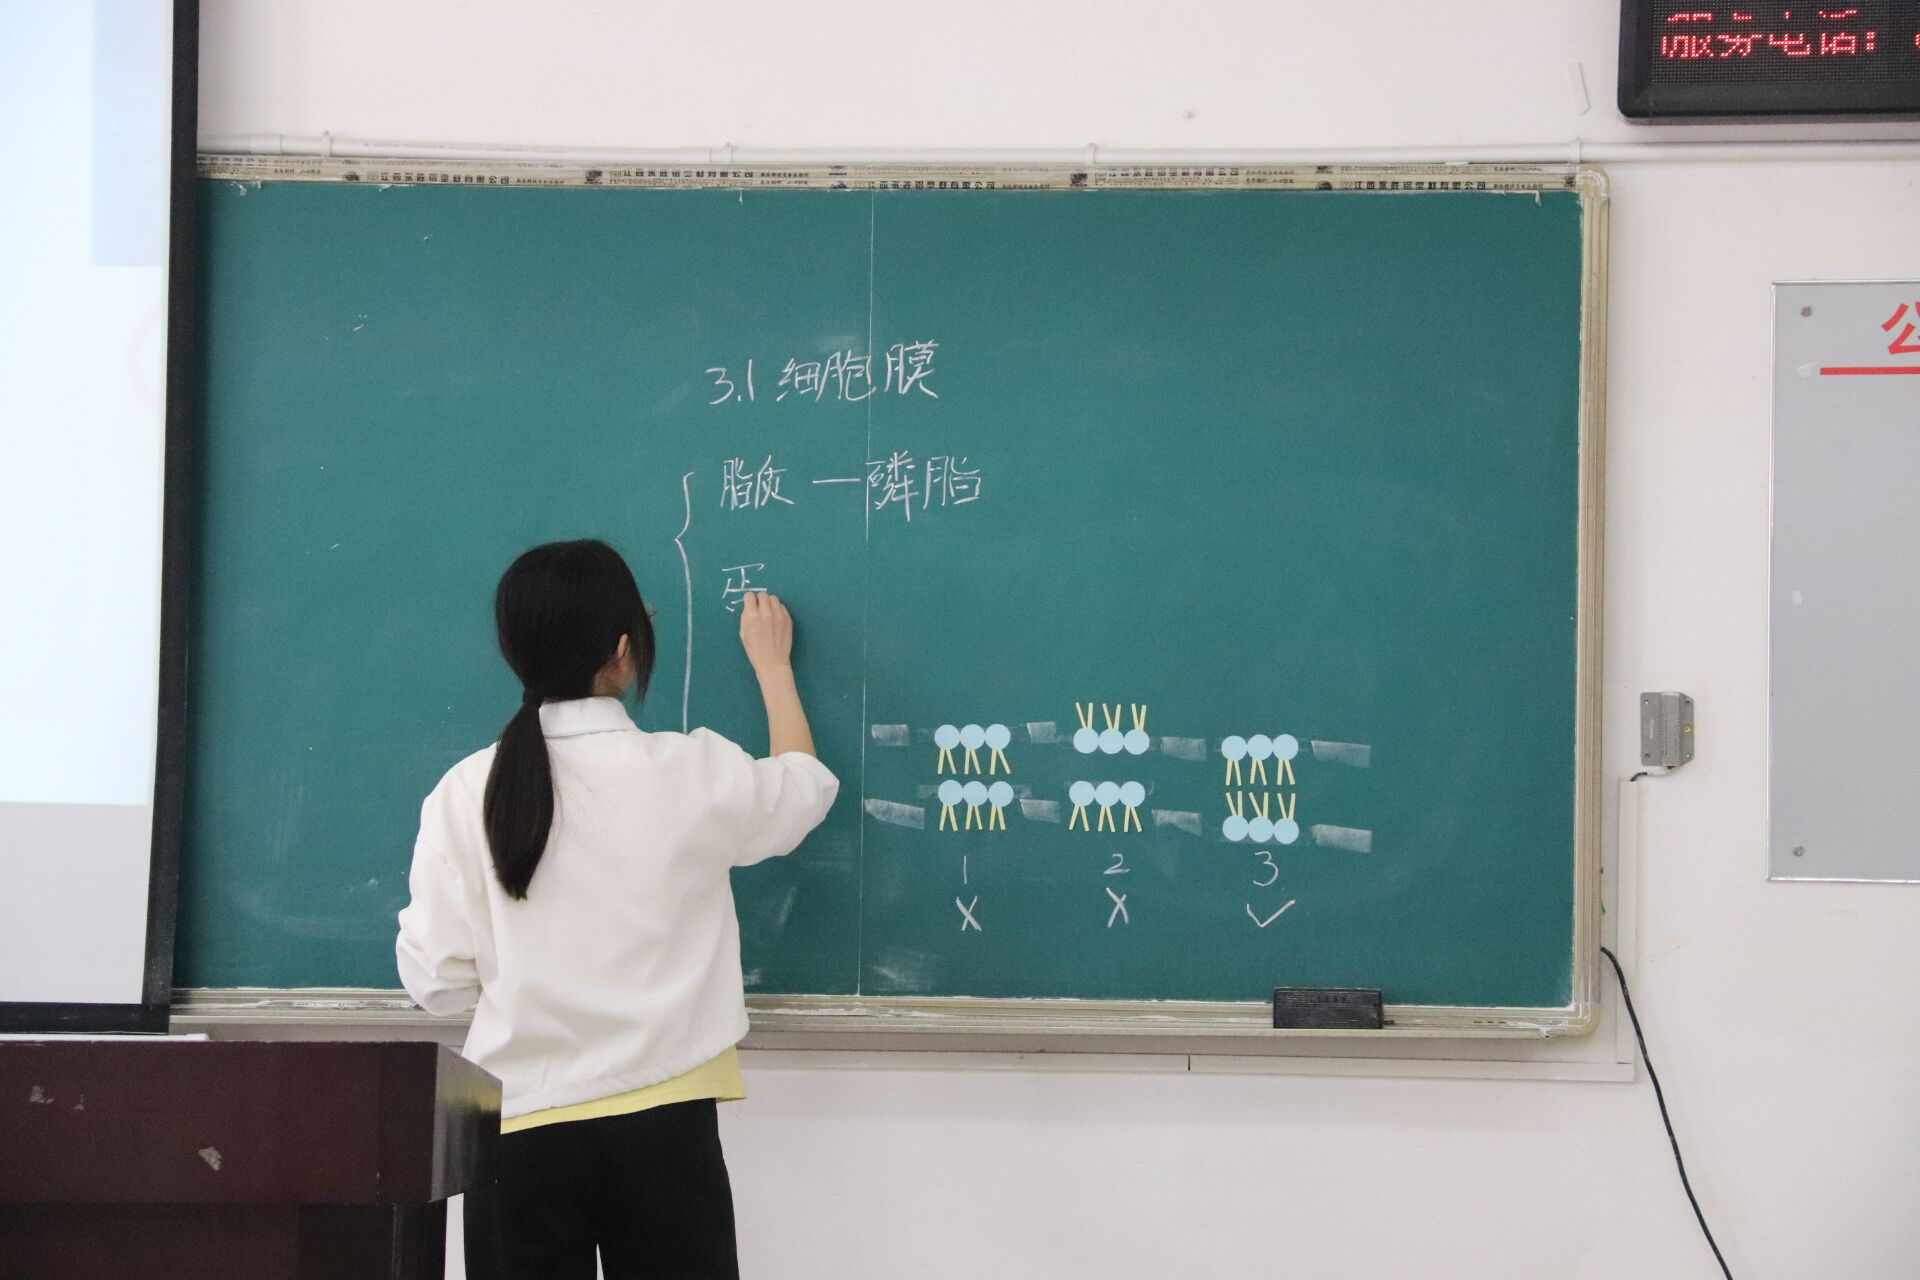 服务电话:
江西永胜铝塑材有限公司
公
3.1 细胞膜
脂质 — 磷脂
蛋
1 2 3
X X ✓